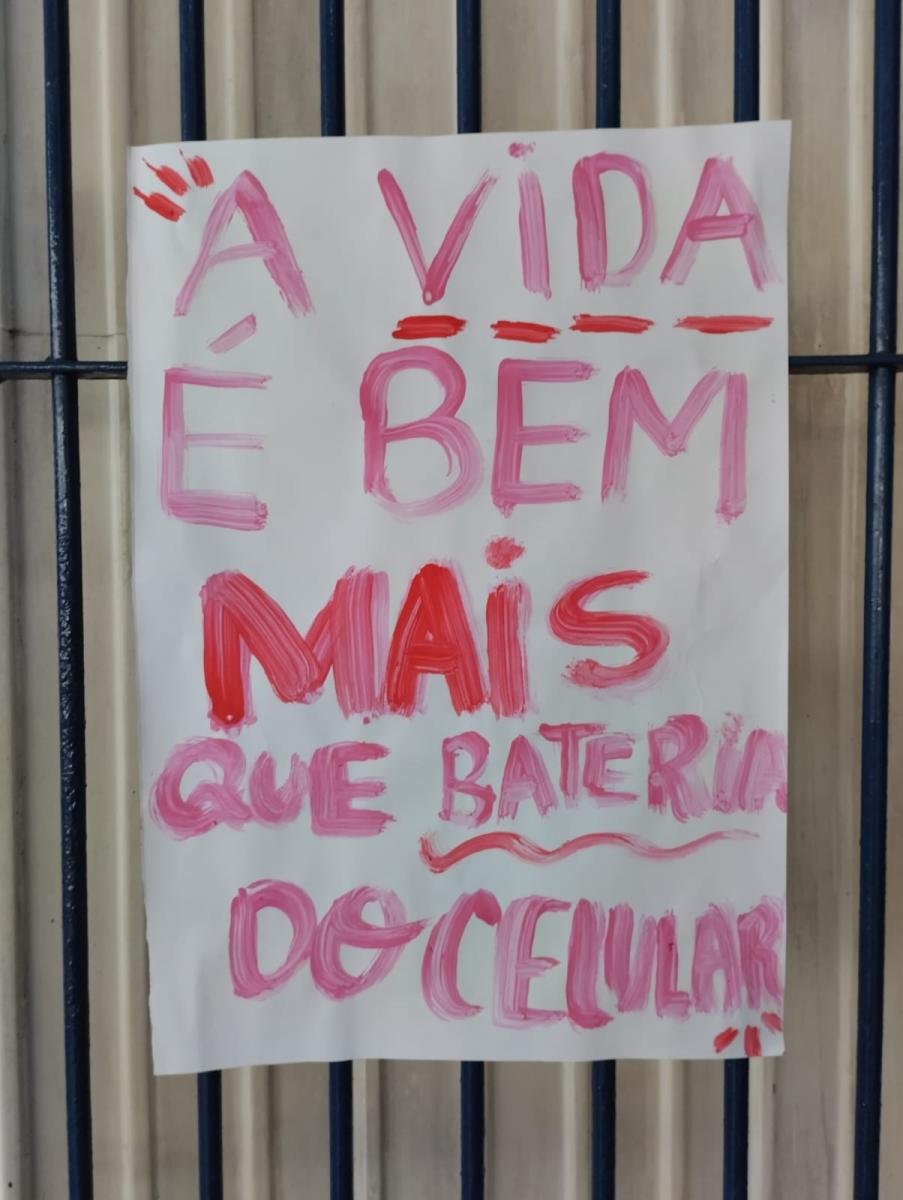 A VIDA
É BEM
MAIS
QUE BATERIA
DO CELULAR